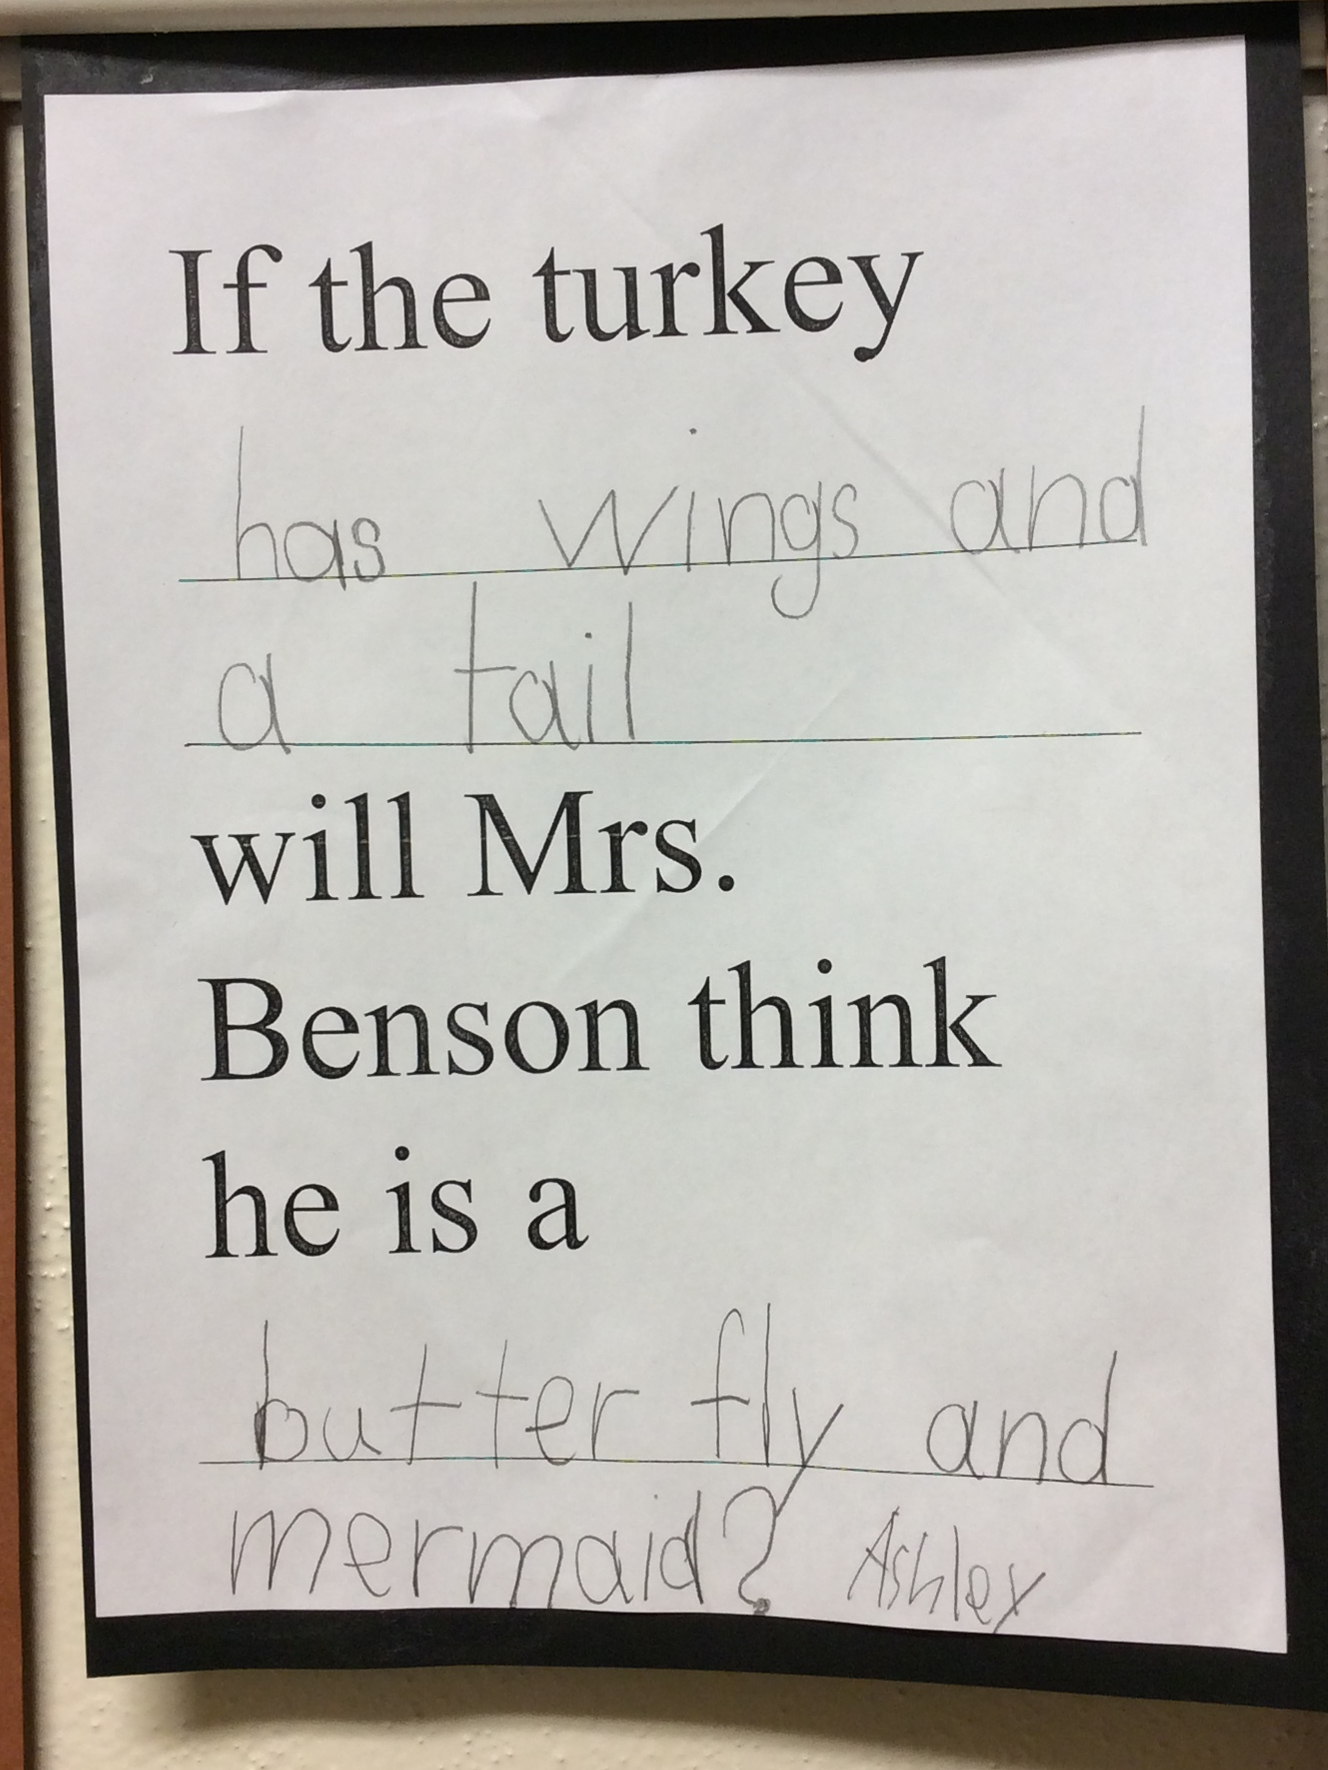 If the turkey
has wings and
a tail
will Mrs.
Benson think
he is a
butter fly and
mermaid? Ashley